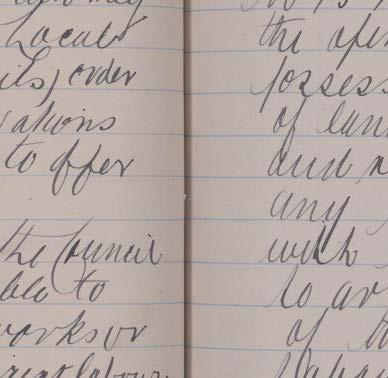 Local
ils) order
vations
to offer
the Council
ble to
works or
the ope
possess
of lan
and
any
with
to ar
of